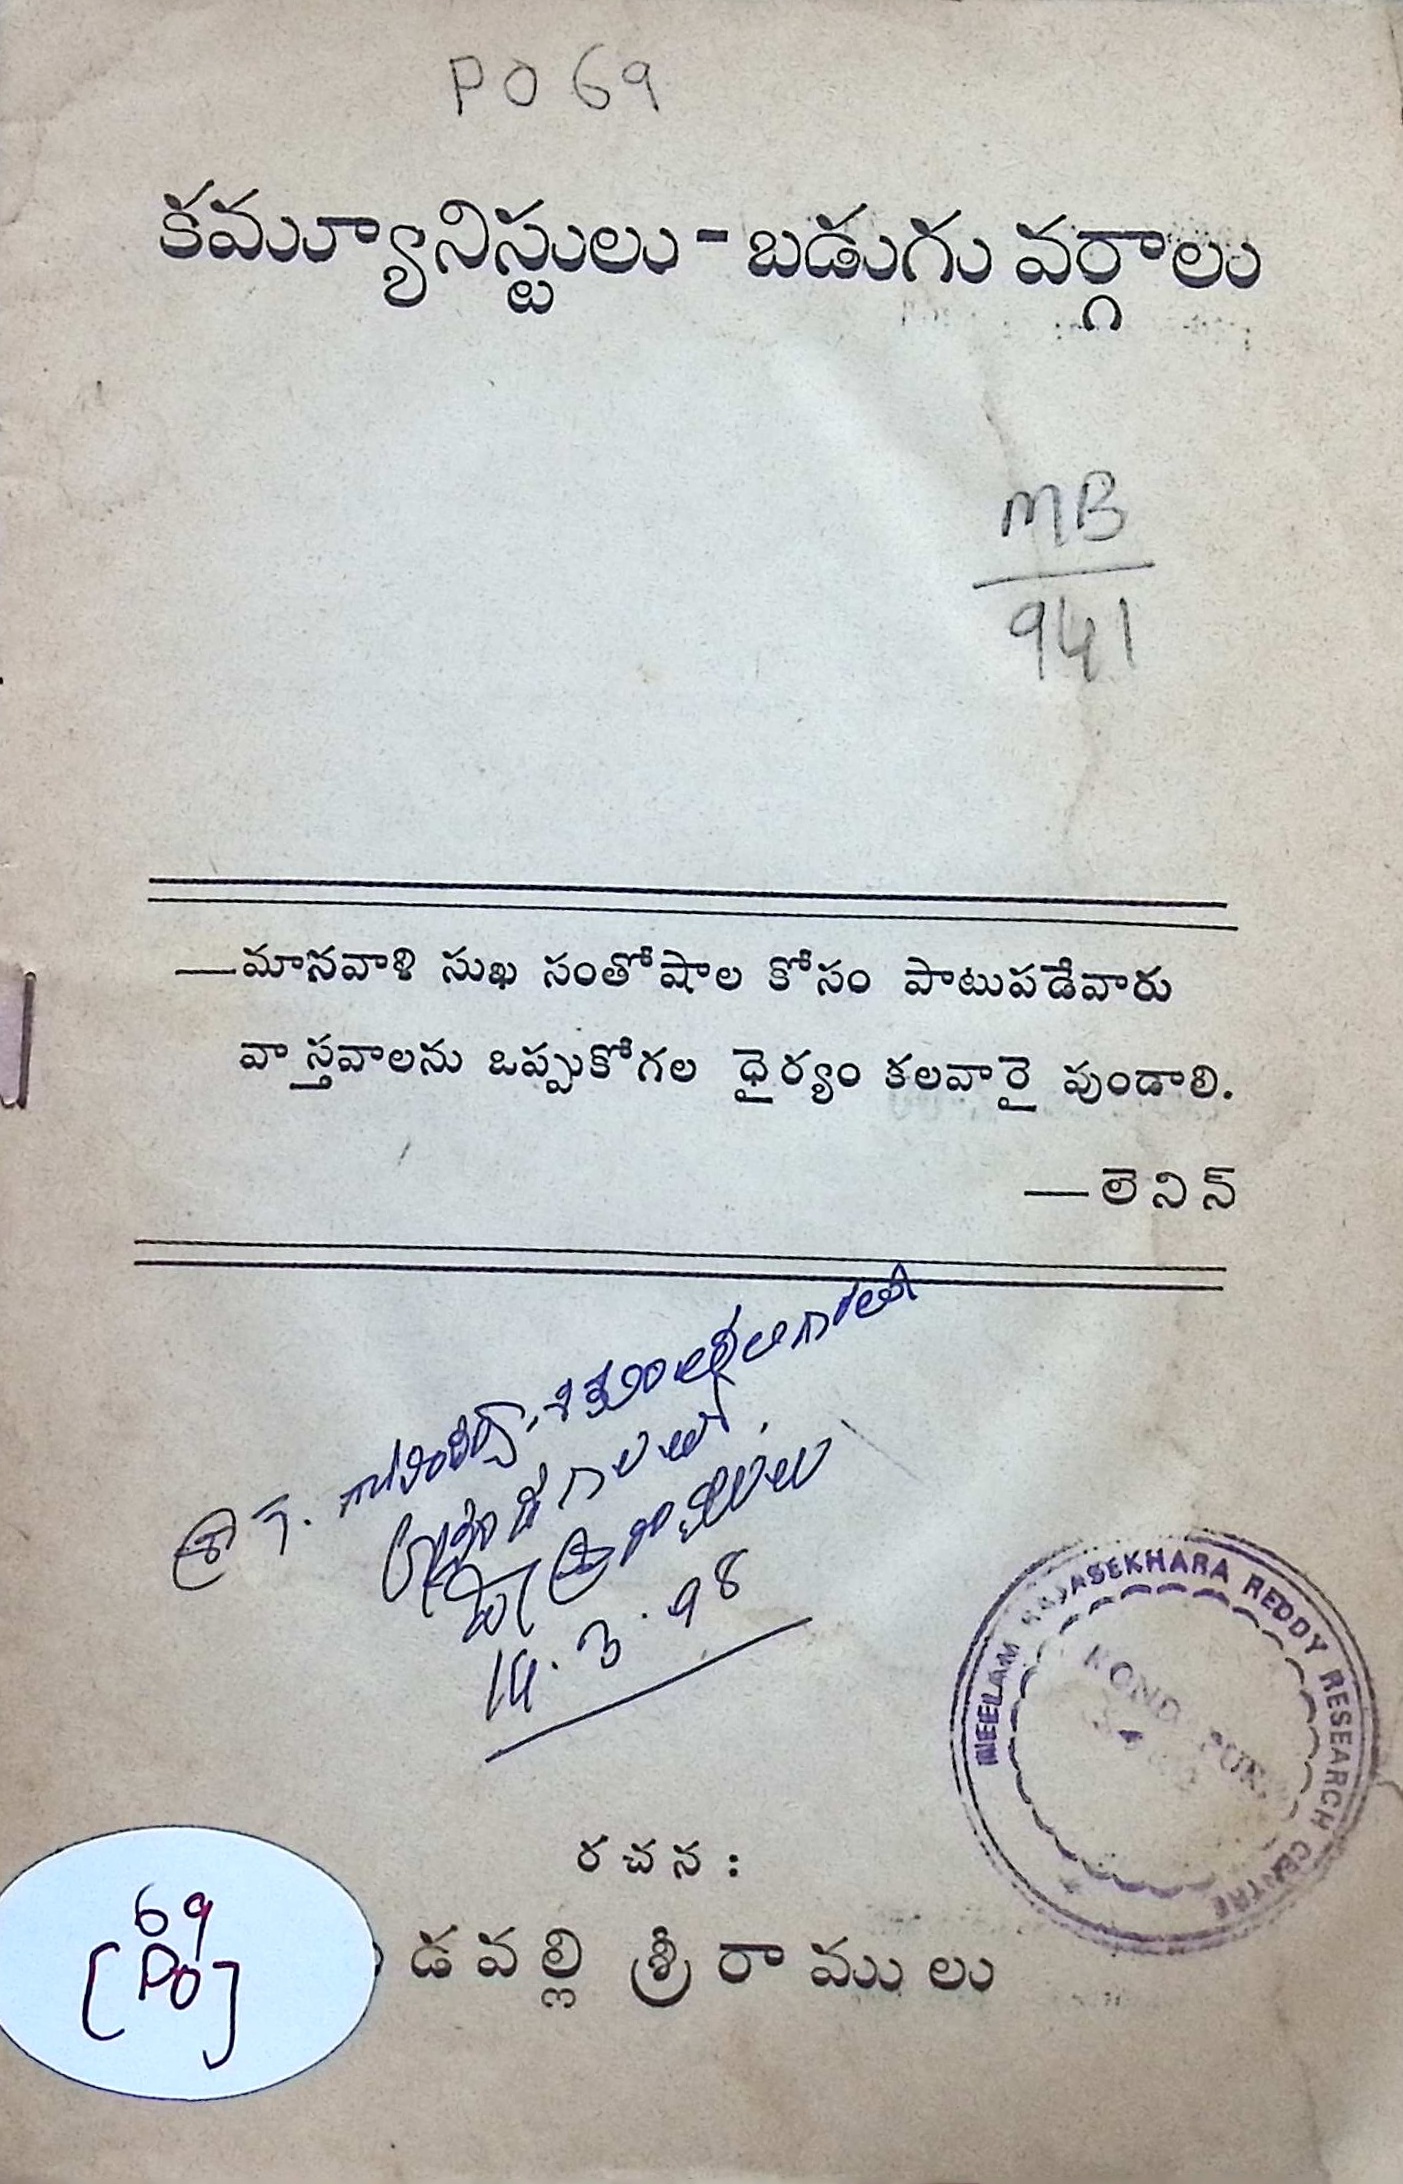 PO 69
కమ్యూనిస్టులు - బడుగు వర్గాలు
MB
941
—మానవాళి సుఖ సంతోషాల కోసం పాటుపడేవారు
వాస్తవాలను ఒప్పుకోగల ధైర్యం కలవారై వుండాలి.
—లెనిన్
14.3.98
NEELAM RAJASEKHARA REDDY RESEARCH CENTRE
KONDAPUR
రచన :
డవల్లి శ్రీరాములు
69
[PO]